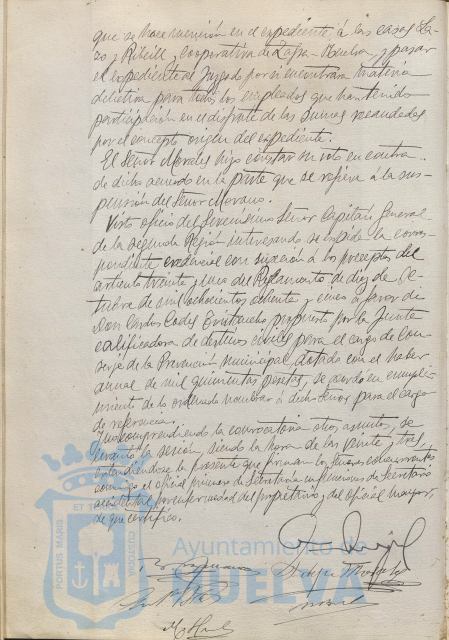 que se hace mención en el expediente, á las casas La-
zo, y Riteill, Cooperativa de Zafra-Huelva, y pasar
el expediente al Juzgado por si encontrara materia
delictiva para todos los empleados que han tenido
participación en el disfrute de las sumas recaudadas
por el concepto origen del expediente.
El Señor Morales hizo constar su voto en contra
de dicho acuerdo en la parte que se refiere á la sus-
pensión del Señor Morano.
Visto oficio del Excelentísimo Señor Capitán General
de la segunda Región interesando se expida la corres-
pondiente credencial con sujeción á los preceptos del
artículo treinta y uno del Reglamento de diez de Oc-
tubre de mil ochocientos ochenta y cinco á favor de
Don Carlos Codes propuesto por la Junta
calificadora de destinos civiles para el cargo de Con-
serje de la Prevención Municipal, dotado con el haber
anual de mil quinientas pesetas, se acordó en cumpli-
miento de lo ordenado nombrar á dicho Señor para el cargo
de referencia.
Y no comprendiendo la convocatoria otros asuntos, se
levantó la sesión, siendo la hora de las veinte y tres,
extendiéndose la presente que firman los Señores concurrentes
conmigo el oficial primero de Secretaría en funciones de Secretario
accidental por enfermedad del propietario y del oficial mayor,
de que certifico.
PORTUS MARIS ET TERRAE CUSTODIA
Ayuntamiento de
HUELVA